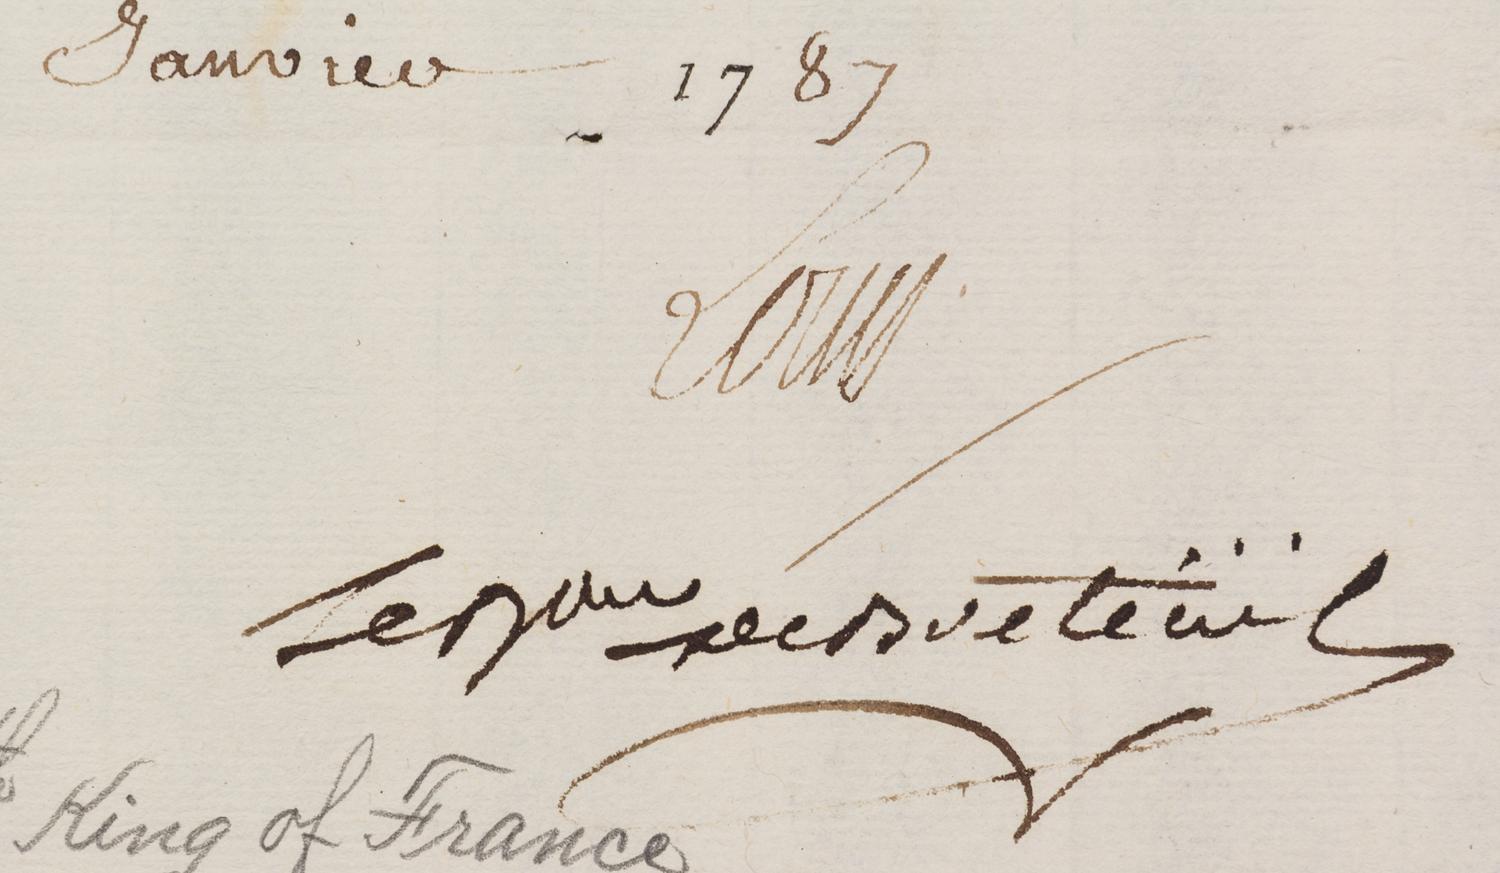 Janvier 1787
Louis
Le Bon de Breteüil
King of France